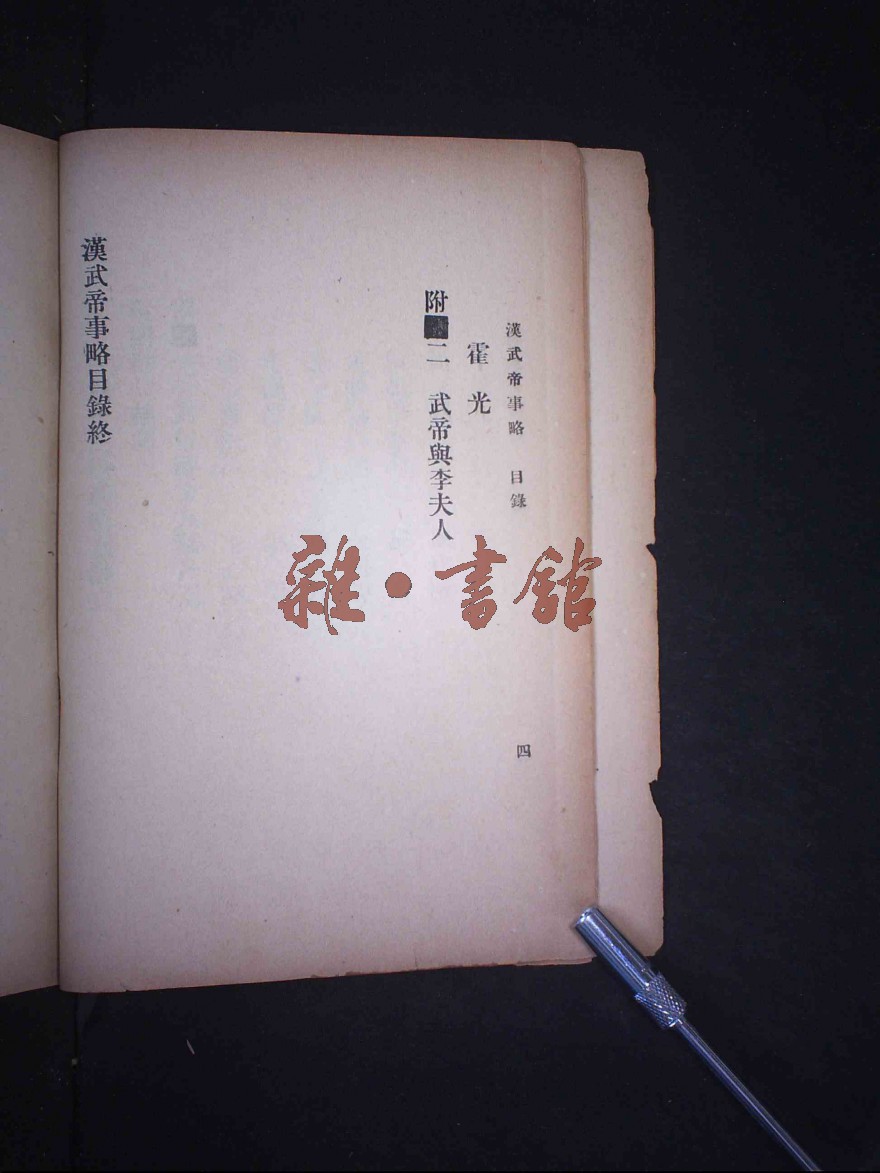 漢武帝事略 目錄
四
霍光
附二 武帝與李夫人
漢武帝事略目錄終
雜·書館